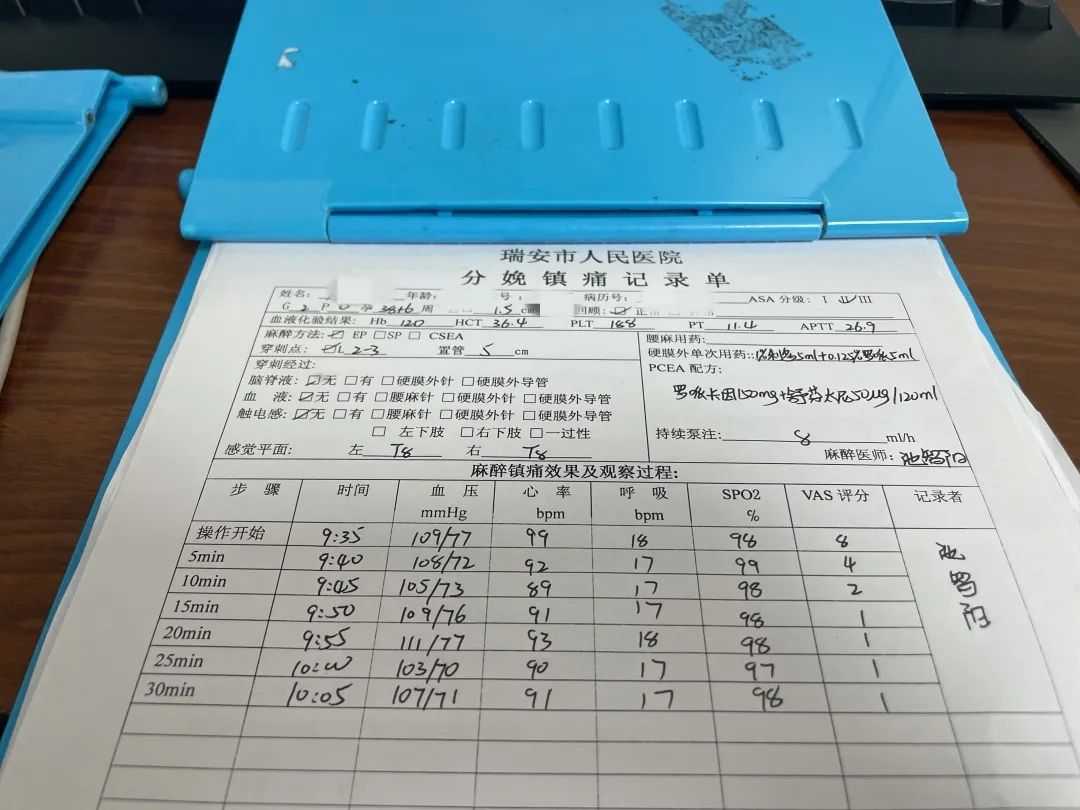 瑞安市人民医院
分娩镇痛记录单
姓名: 年龄: 号: 病历号: ASA 分级: I II/III
G 2 P 0 孕 38+6 周 1.5 cm 回顾: ☑ 正常 □
血液化验结果: Hb 120 HCT 36.4 PLT 188 PT 11.4 APTT 26.9
麻醉方法: ☑ EP □SP □ CSEA
穿刺点: ☑L 2-3 置管 5 cm
穿刺经过:
脑脊液: ☑无 □有 □硬膜外针 □硬膜外导管
血 液: ☑无 □有 □腰麻针 □硬膜外针 □硬膜外导管
触电感: ☑无 □有 □腰麻针 □硬膜外针 □硬膜外导管
□ 左下肢 □右下肢 □一过性
感觉平面: 左 T8 右 T8
腰麻用药:
硬膜外单次用药: 1%利多5ml+0.125%罗哌5ml
PCEA 配方:
罗哌卡因150mg+舒芬太尼50μg/120ml
持续泵注: 8 ml/h
麻醉医师:
麻醉镇痛效果及观察过程:
步 骤 时间 血 压 mmHg 心 率 bpm 呼 吸 bpm SPO2 % VAS 评分 记录者
操作开始 9:35 109/77 99 18 98 8
5min 9:40 108/72 92 17 99 4
10min 9:45 105/73 89 17 98 2
15min 9:50 109/76 91 17 98 1
20min 9:55 111/77 93 18 98 1
25min 10:00 103/70 90 17 97 1
30min 10:05 107/71 91 17 98 1